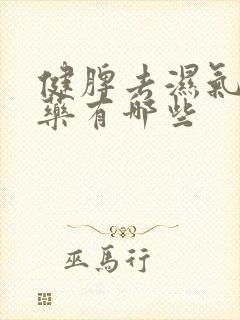 健脾去濕氣
藥有哪些
巫馬行